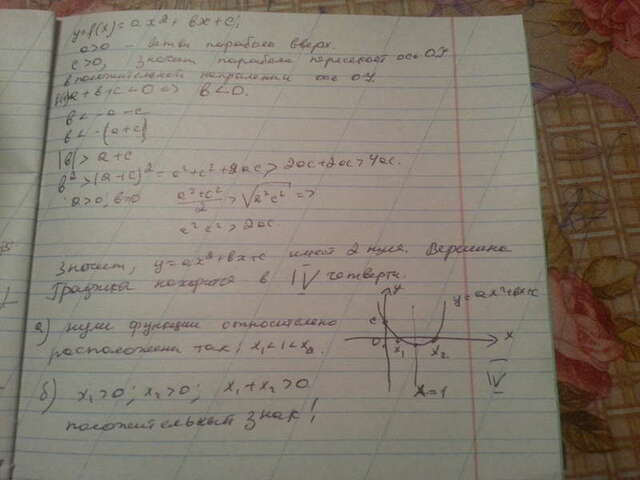 y=f(x)=ax²+вx+c;
a>0 – ветви парабола вверх.
c>0, значит парабола пересекает ось OY
в положительной направлении оси OY.
a+в+c<0 => в<0.
в<-a-c
в<-(a+c)
|в|>a+c
в²>(a+c)²=a²+c²+2ac>2ac+2ac>4ac.
a>0, в>0 (a²+c²)/2 > √(a²c²) =>
a²c²>2ac.
Значит, y=ax²+вx+c имеет 2 нуля. Вершина
Графика находится в IV четверти.
а) нули функции относительно
расположены так: x₁<1<x₂.
б) x₁>0; x₂>0; x₁+x₂>0
положительный знак!
y
y=ax²+вx+c
c
0
x₁
x₂
x
x=1
IV